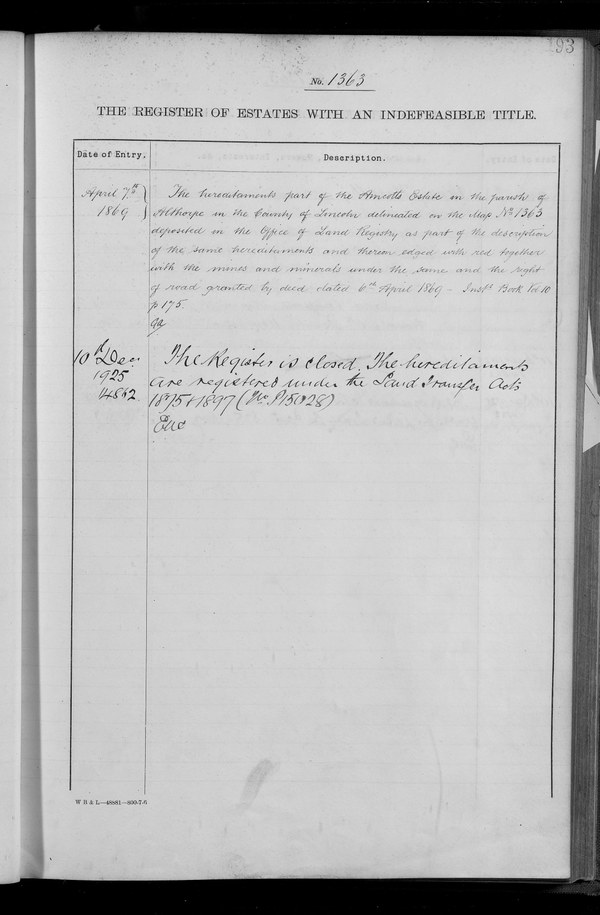 193
No. 1363
THE REGISTER OF ESTATES WITH AN INDEFEASIBLE TITLE.
Date of Entry. Description.
April 7th 1869 The hereditaments part of the Amcotts Estate in the parish of
Althorpe in the County of Lincoln delineated on the Map No 1363
deposited in the Office of Land Registry as part of the description
of the same hereditaments and thereon edged with red together
with the mines and minerals under the same and the right
of road granted by deed dated 6th April 1869 - Inst. Book Vol 10
p 175.
10th Dec. 1925 The Register is closed. The hereditaments
are registered under the Land Transfer Acts
1875 & 1897 (No. P15028)
W B & L—48881—800-7-6